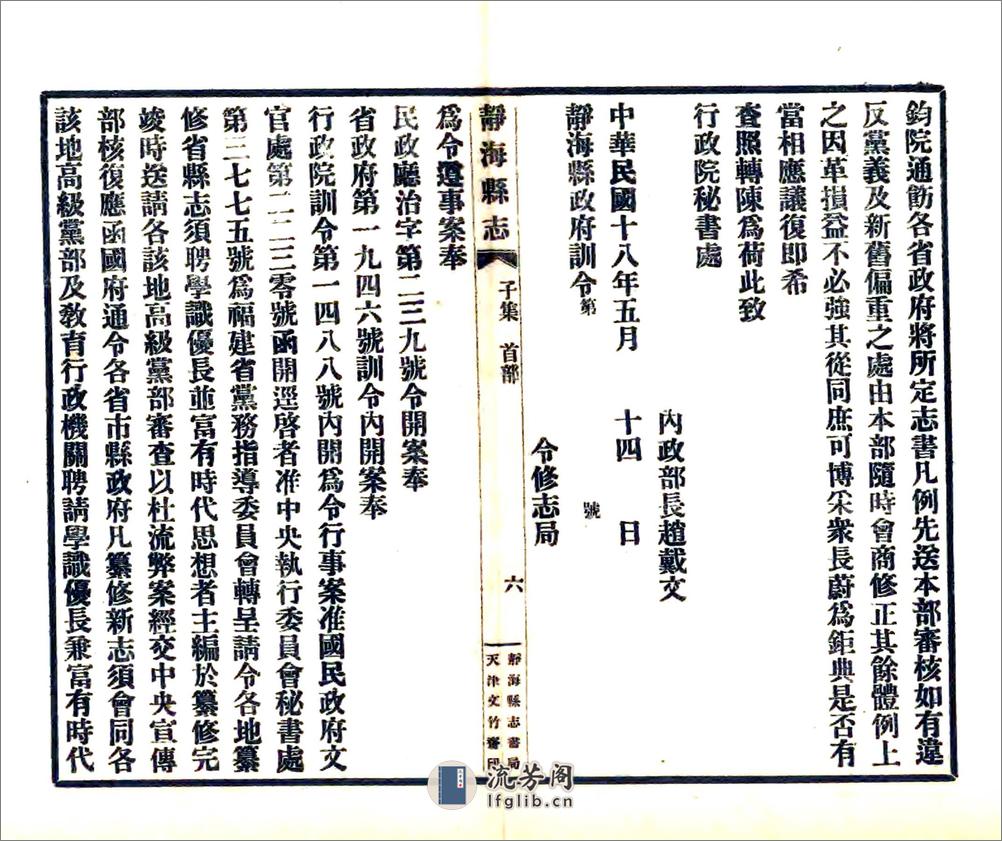 鈞院通飭各省政府將所定志書凡例先送本部審核如有違
反黨義及新舊偏重之處由本部隨時會商修正其餘體例上
之因革損益不必強其從同庶可博采衆長蔚爲鉅典是否有
當相應議復即希
查照轉陳爲荷此致
行政院秘書處
內政部長趙戴文
中華民國十八年五月 十四 日
靜海縣政府訓令 第 號
令修志局
靜海縣志 子集 首部 六
靜海縣志書局
天津文竹齋印
爲令遵事案奉
民政廳治字第二三三九號令開案奉
省政府第一九四六號訓令內開案奉
行政院訓令第一四八八號內開爲令行事案准國民政府文
官處第二二三零號函開逕啓者准中央執行委員會秘書處
第三七七五號爲福建省黨務指導委員會轉呈請令各地纂
修省縣志須聘學識優長並富有時代思想者主編於纂修完
竣時送請各該地高級黨部審查以杜流弊案經交中央宣傳
部核復應函國府通令各省市縣政府凡纂修新志須會同各
該地高級黨部及敎育行政機關聘請學識優長兼富有時代
流芳阁
lfglib.cn